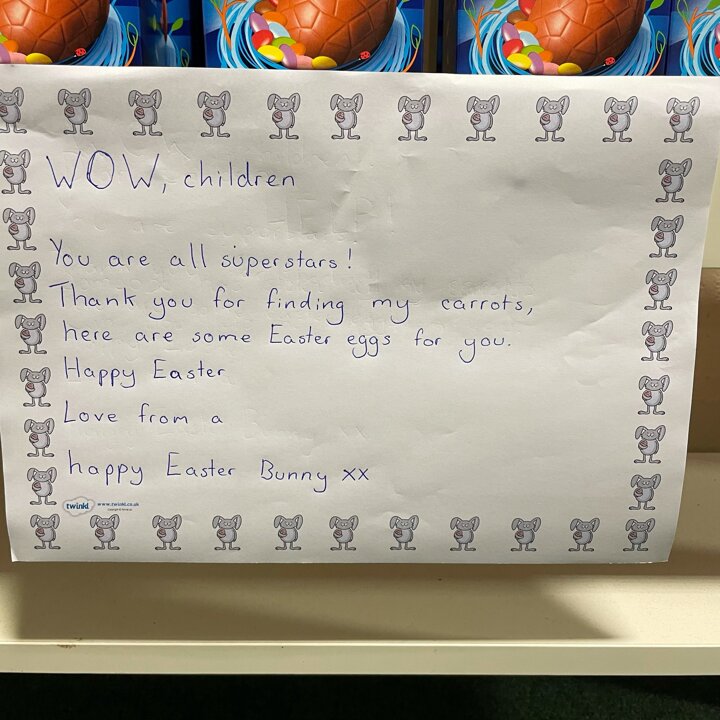 WOW, children
You are all superstars!
Thank you for finding my carrots,
here are some Easter eggs for you.
Happy Easter
Love from a
happy Easter Bunny xx
twinkl www.twinkl.co.uk